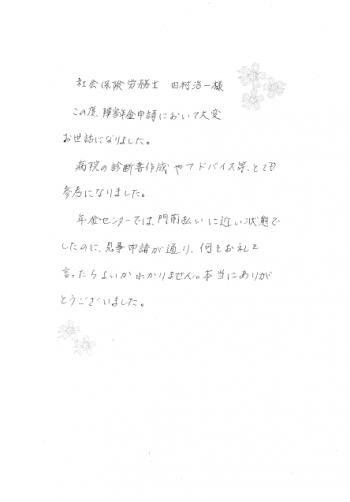 社会保険労務士 田村浩一様
この度、障害年金申請において大変
お世話になりました。
病院の診断書作成やアドバイス等、とても
参考になりました。
年金センターでは、門前払いに近い状態で
したのに、見事申請が通り、何とお礼を
言ったらよいかわかりません。本当にありが
とうございました。